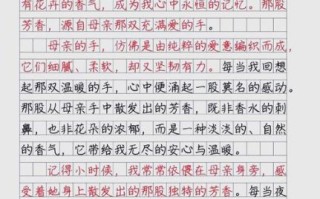 有花卉的香气，成为我心中永恒的记忆。那股
芳香，源自母亲那双充满爱的手。
母亲的手，仿佛是由纯粹的爱意编织而成，
它们细腻、柔软，却又坚韧有力。每当我回想
起那双温暖的手，心中便涌起一股莫名的感动。
那股从母亲手中散发出的芳香，既非香水的刺
鼻，也非花朵的浓郁，而是一种淡淡的、自然
的香气，它带给我无尽的安心与温暖。
记得小时候，我常常依偎在母亲身旁，感
受着她身上散发出的那股独特的芳香。每当夜